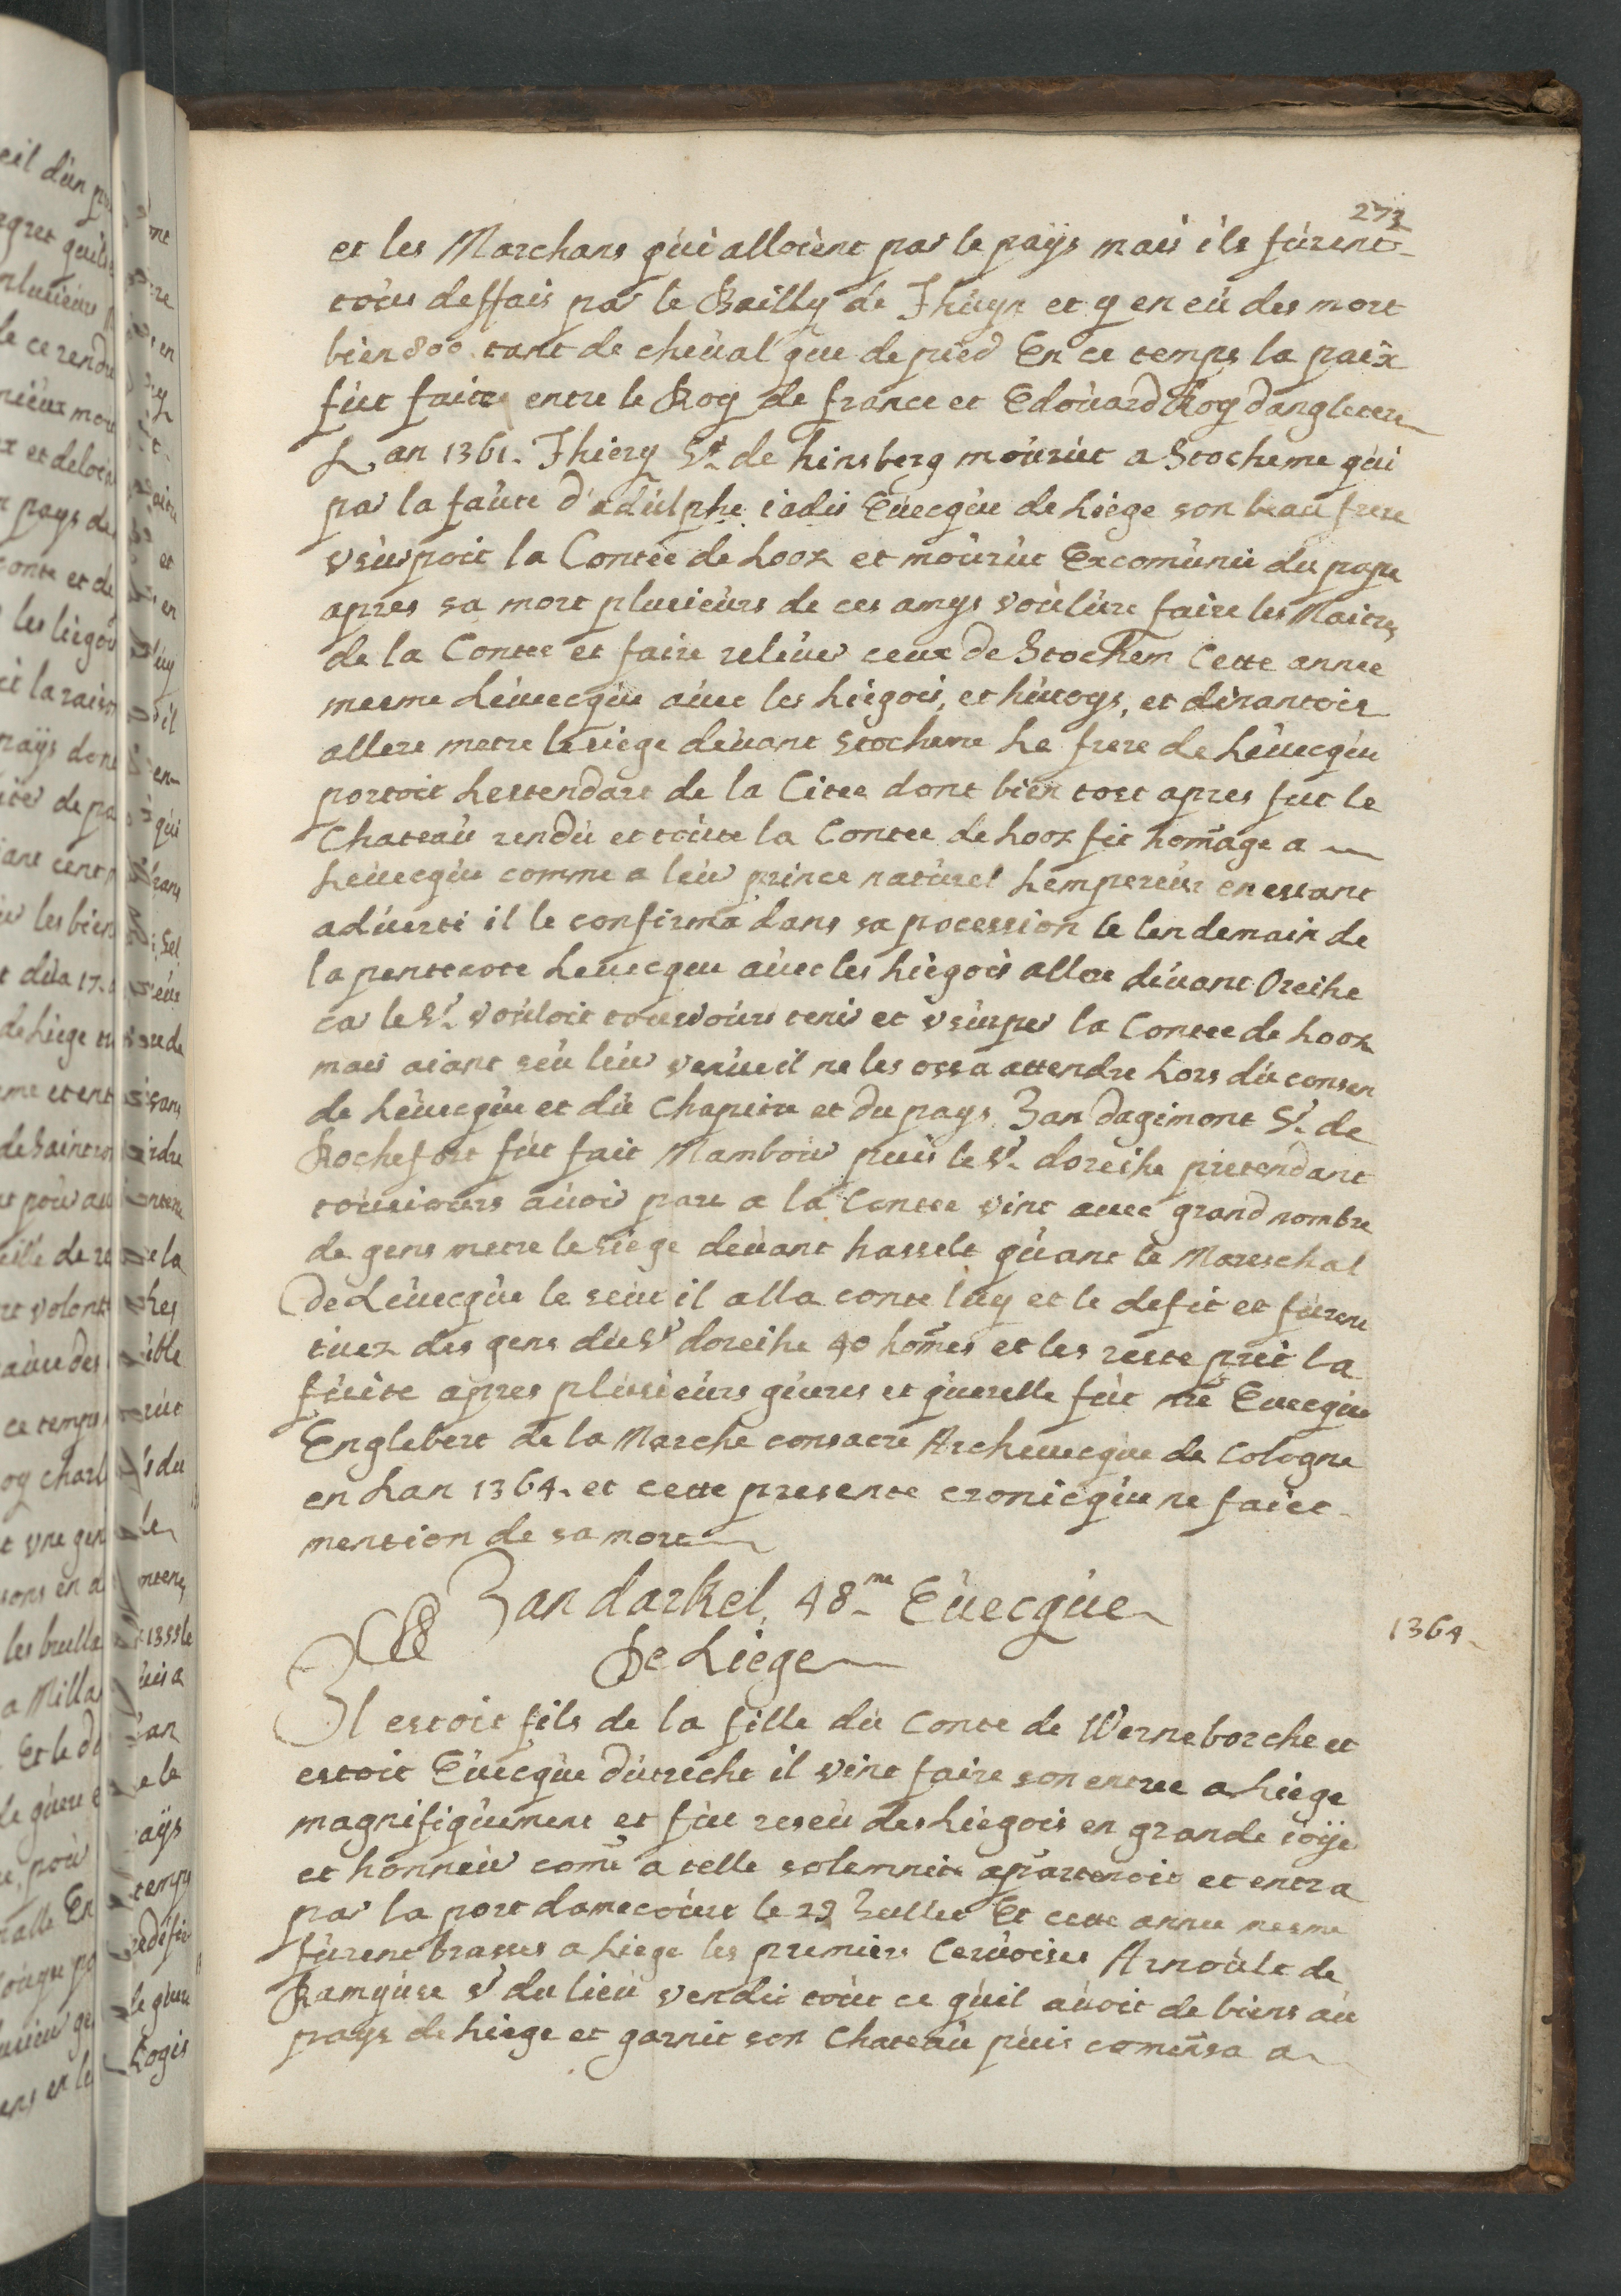 273
et les Marchans qui alloient par le pays mais ils furent
tous deffais par le Bailly de Thuyn et y en eu des mort
bien 800 tant de cheual que de pied En ce temps la paix
fut faite entre le Roy de france et Edouard Roy dangleterre
L an 1361. Thiery Sr de hinsberg mourut a Stocheme qui
par la faute d'adulphe iadis Euecque de Liege son beau frere
vsurpoit la Contée de Looz et mourut Excomunie du pape
apres sa mort plusieurs de ces amys voulure faire les Maitres
de la Contee et faire releuer ceux de Stochem Cette annee
mesme Leuecque auec les Liegois, et hutoys, et dinantois
allere metre le siege deuant Stocheme Le frere de Leuecque
portoit Lestendart de la Citee dont bien tost apres fut le
Chateau rendu et toute la Contee de Looz fit homage a
Leuecque comme a leur prince naturel Lempereur en estant
aduerti il le confirma dans sa pocession le lendemain de
la pentecote Leuecque auec les Liegois allere deuant Oreihe
car le Sr vouloit tousiours tenir et vsurper la Contee de Looz
mais aiant seu leur venue il ne les ossa attendre Lors du consen
de Leuecque et du Chapitre et du pays Jan dagimont Sr de
Rochefort fut fait Mambour puis le Sr doreihe pretendant
tousiours auoir part a la Contee vint auec grand nombre
de gens metre le siege deuant hasselt quant le Mareschal
de Leuecque le seut il alla conte luy et le defit et furent
tuez des gens du Sr doreihe 40 homes et les reste prit la
fuite apres plusieurs guerres et querelle fut nre Euecque
Englebert de la Marche consacre Archeuecque de Cologne
en Lan 1364. et cette presente cronicque ne faict
mention de sa mort
Jan darkel 48me Euecque
De Liege
1364
Il estoit fils de la fille du Conte de Werneborche et
estoit Euecque dutrecht il vint faire son entree a Liege
magnifiquement et fut reseu des Liegois en grande ioije
et honneur come a telle solemnite apartenoit et entra
par la port damecourt le 29 Jullet Et cette annee mesme
furent brasses a Liege les premiers Ceruoises Arnoult de
Ramyure Sr du lieu vendit tout ce quil auoit de biens au
pays de Liege et garnit son Chateau puis comensa a